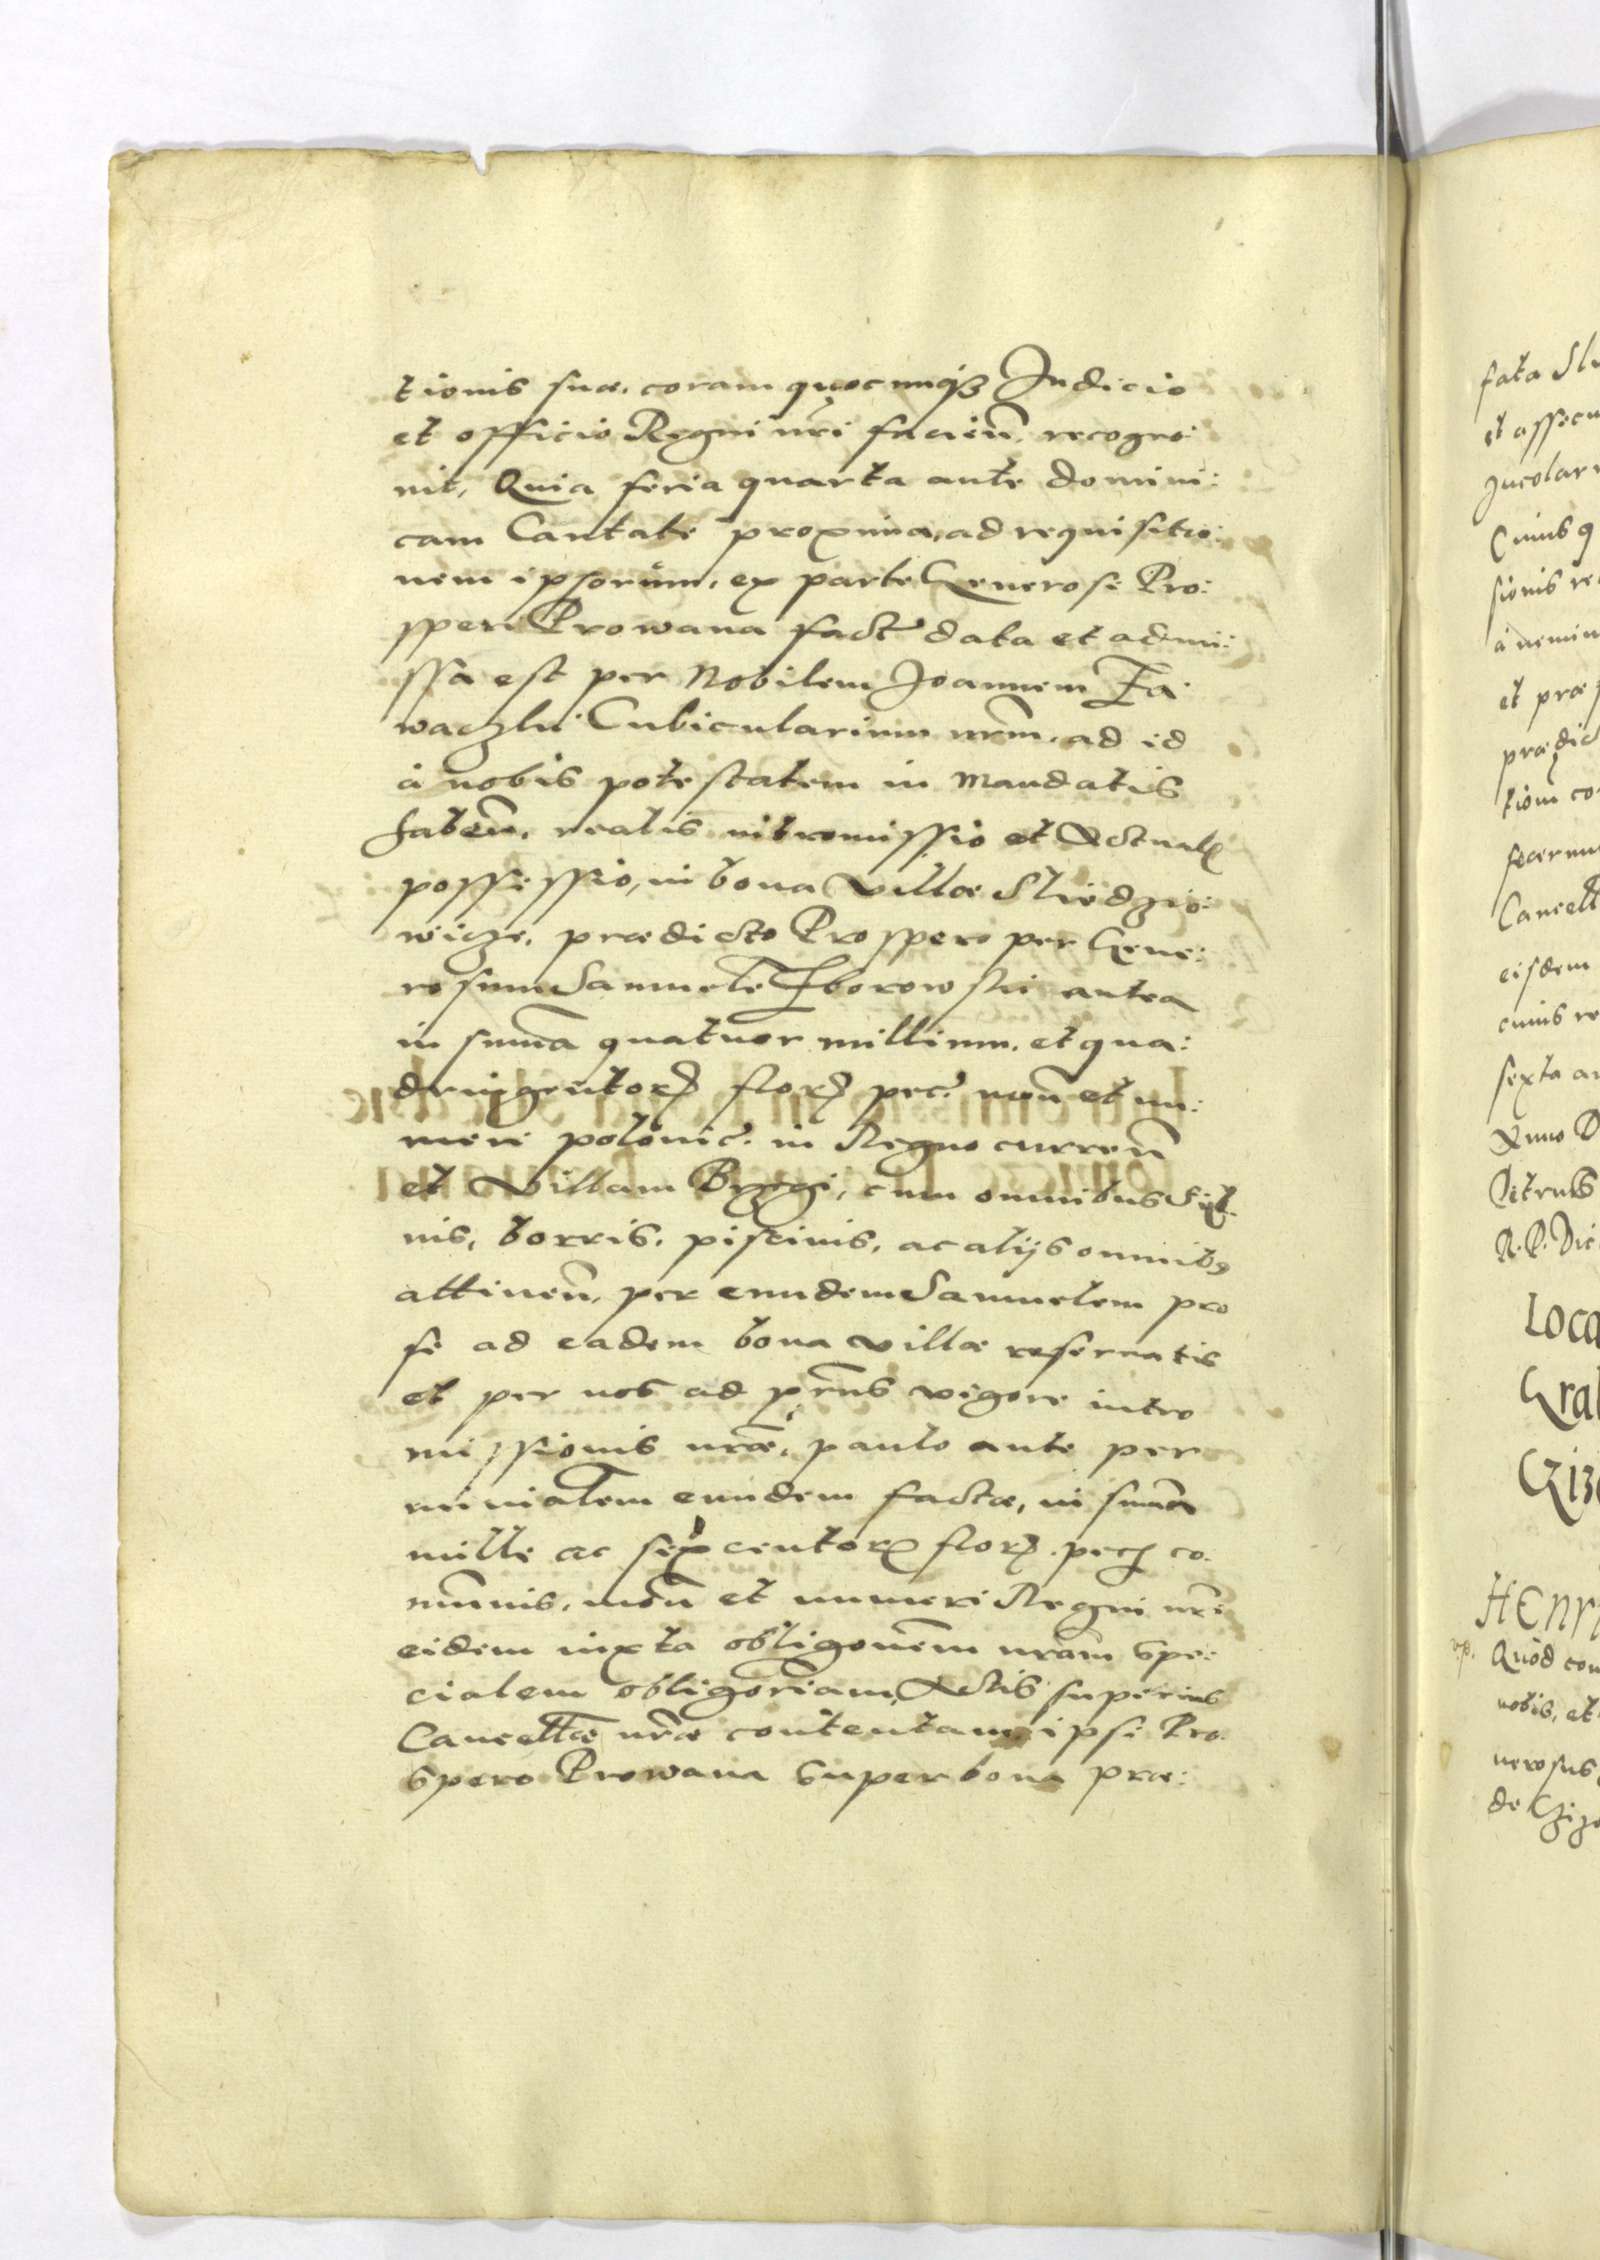 tionis suæ, coram quocunq3 Judicio
et officio Regni nr̃i facien̄. recogno:
uit, Quia feria quarta ante domini:
cam Cantate proxima, ad requisitio:
nem ipsorum, ex parte Generosi Pro:
speri Prowana fact̃ data et admi:
ssa est per Nobilem Joannem Za:
waczky Cubicularium nr̃m, ad id
à nobis potestatem in Mandatis
haben̄, realis intromissio et Actualis
possessio, in bona Villæ Sliedzio:
wicze, prædicto Prospero per Gene:
rosum Samuele Zborowski antea
in sum̄a quatuor millium, et qua:
dringentorꝝ florꝝ pec̃ mon̄ et nu:
meri polonic̃. in Regno curren̄
et Villam Brzegi, cum omnibus
nis, borris, piscinis, ac alijs omnib9
attinen̄, per eundem Samuelem pro
se ad eadem bona villæ reseruatis
et per nos ad pr̃ns vigore intro
missionis nr̃æ, paulo ante per
ministialem eundem factæ, in sum̄a
mille ac sexcentorꝝ florꝝ. pec̃ co:
mūnis, mon̄ et numeri Regni nr̃i
eidem iuxta obligōnem nr̃am spe:
cialem obligoriam, Actis superius
Cancellæ nr̃æ contentam, ipsi Pro:
spero Prowana super bona præ:

fata Sl
et assecu
Jucolar
Cuius q
sionis re
à nemin
et præ
prædic
tiom̃ co
fecernn
Cancell
eisdem
cuius re
sexta an
Anno D
Petrus
R. P. Vic
Loca
Gral
Czi3
HENR
Quod con
nobis, et
nerosus
de Czizo